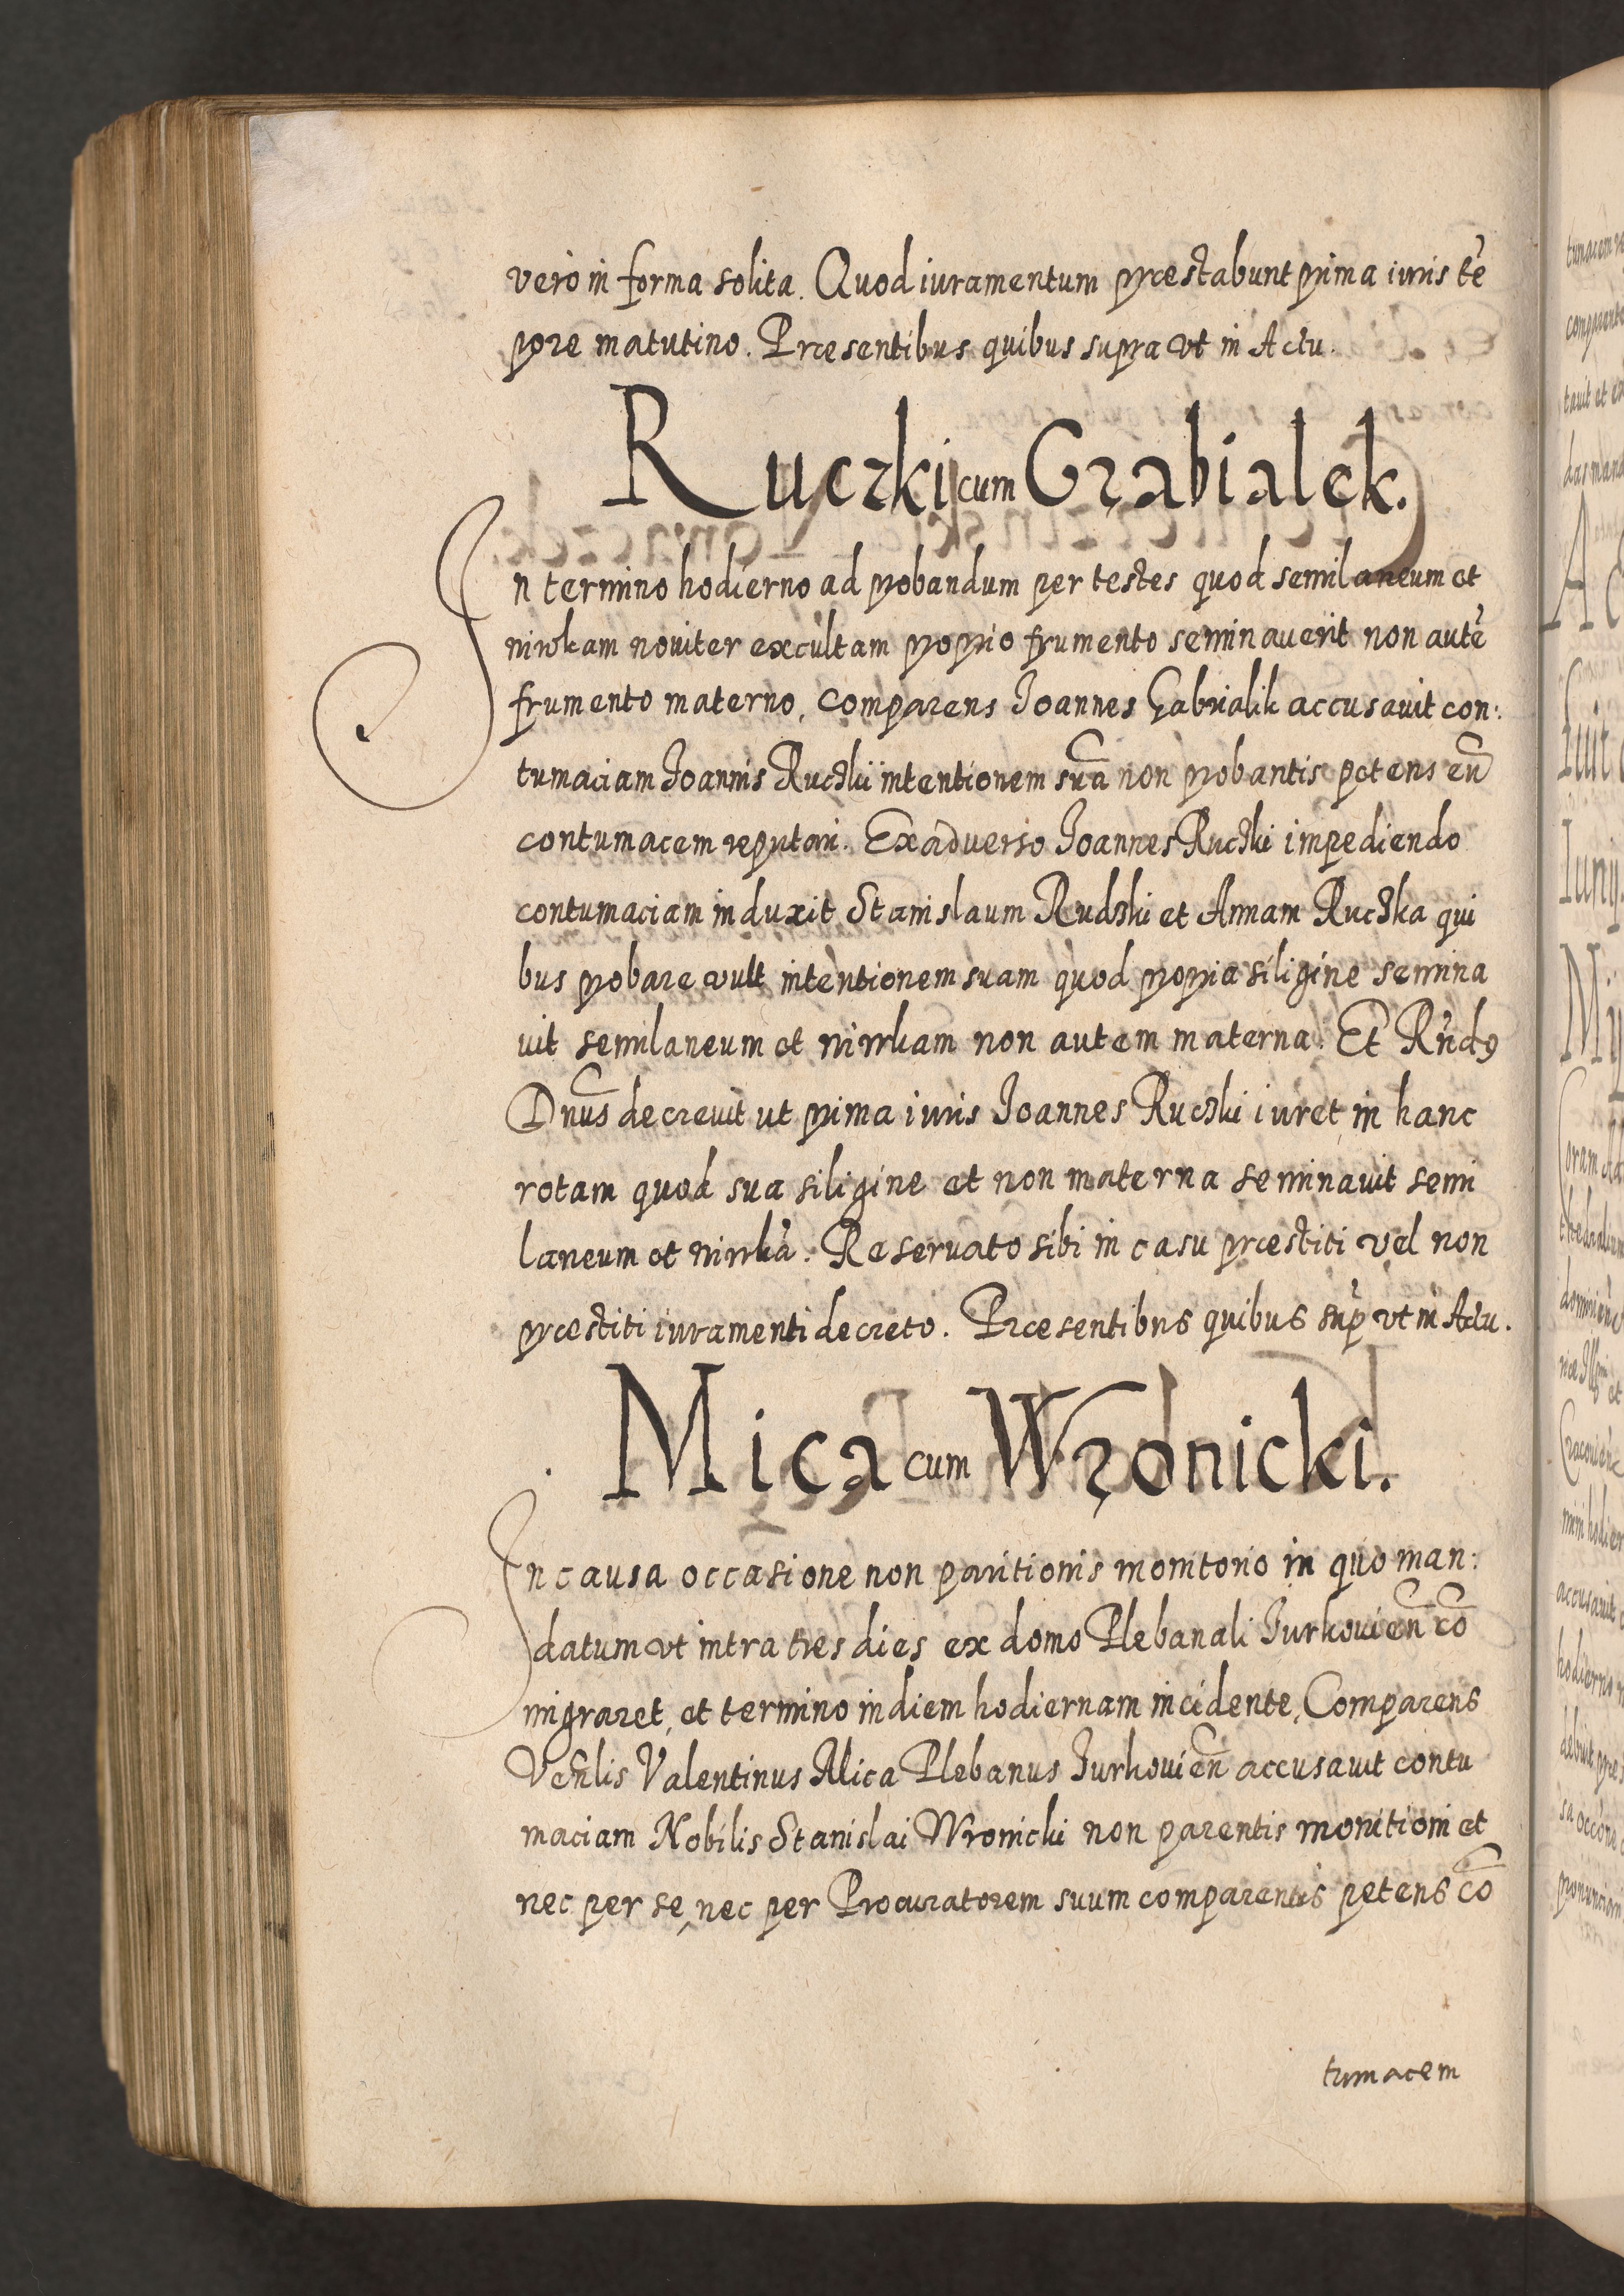 vero in forma solita. Quod iuramentum præstabunt prima iuris tē
pore matutino. Præsentibus quibus supra vt in Actu.
Ruczki cum Grabialek.
In termino hodierno ad probandum per testes quod semilaneum et
niwkam nouiter excultam proprio frumento seminauerit non autē
frumento materno, comparens Joannes Gabrialik accusauit con:
tumaciam Joannis Ruczkii intentionem suā non probantis petens eū
contumacem reputari. Ex aduerso Joannes Ruczki impediendo
contumaciam induxit Stanislaum Rudzki et Annam Ruczka qui
bus probare vult intentionem suam quod propria siligine semina
uit semilaneum et niwkam non autem materna. Et Rnd9
Dnūs decreuit ut prima iuris Joannes Ruczki iuret in hanc
rotam quod sua siligine et non materna seminauit semi
laneum et niwkā. Reseruato sibi in casu præstiti vel non
præstiti iuramenti decreto. Præsentibus quibus sup vt in Actu.
Mica cum Wronicki.
In causa occasione non paritionis monitorio in quo man:
datum vt intra tres dies ex domo Plebanali Jurkouieñ cō
migraret, et termino in diem hodiernam incidente, Comparens
Venlis Valentinus Mica Plebanus Jurkouieñ accusauit contu
maciam Nobilis Stanislai Wronicki non parentis monitioni et
nec per se, nec per Procuratorem suum comparentis petens cō
tumacem